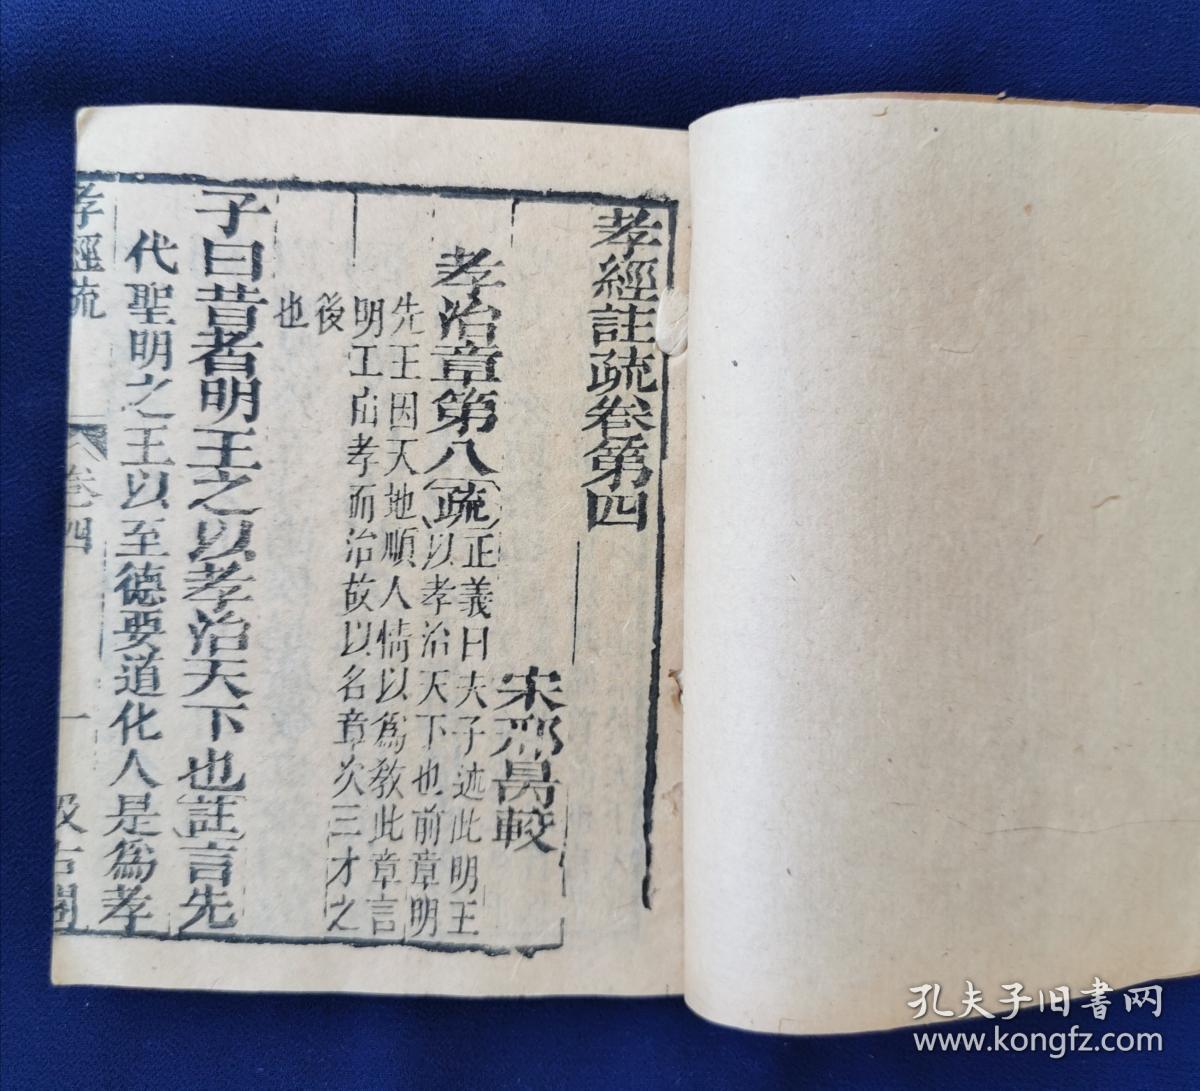 孝經註疏卷第四
宋邢昺較
孝治章第八疏正義曰夫子述此明王
以孝治天下也前章明
先王因天地順人情以為教此章言
明王由孝而治故以名章次三才之
後
也
子曰昔者明王之以孝治天下也註言先
代聖明之王以至德要道化人是為孝
孝經疏
卷四
一
汲古閣
孔夫子旧书网
www.kongfz.com